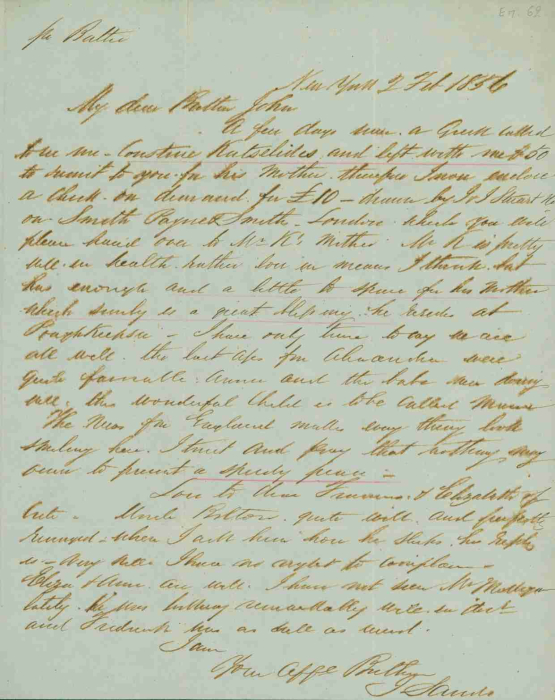 En. 69
pr Baltic
New York 2 Feb 1856
My dear Brother John
A few days since a Greek called
to see me - Constine and left with me $50
to remit to you for his Mother. therefore I now enclose
a Check on demand for £10 - drawn by J & J Stuart &
on Smith Payne & Smith - London which you will
please hand over to Mr K's Mother Mr K is pretty
well in health rather low in means I think but
has enough and a little to spare for his Mother
which surely is a great blessing he resides at
Poughkeepsie - I have only time to say we are
all well. the last from were
quite favorable Anna and the babe were doing
well. this wonderful Child is to be called
The News fm England makes every thing look
smiling here. I trust and pray that nothing may
occur to prevent a speedy peace -
Love to dear Frances & Elizabeth of
Uncle Bolton quite well and
when I ask him how he sleeps his reply
is - very well I have no right to complain -
Eliza & Anna are well. I have not seen Mr
lately. He was looking remarkably well in Oct
and Frederick was as well as usual.
I am
Your Affe Brother